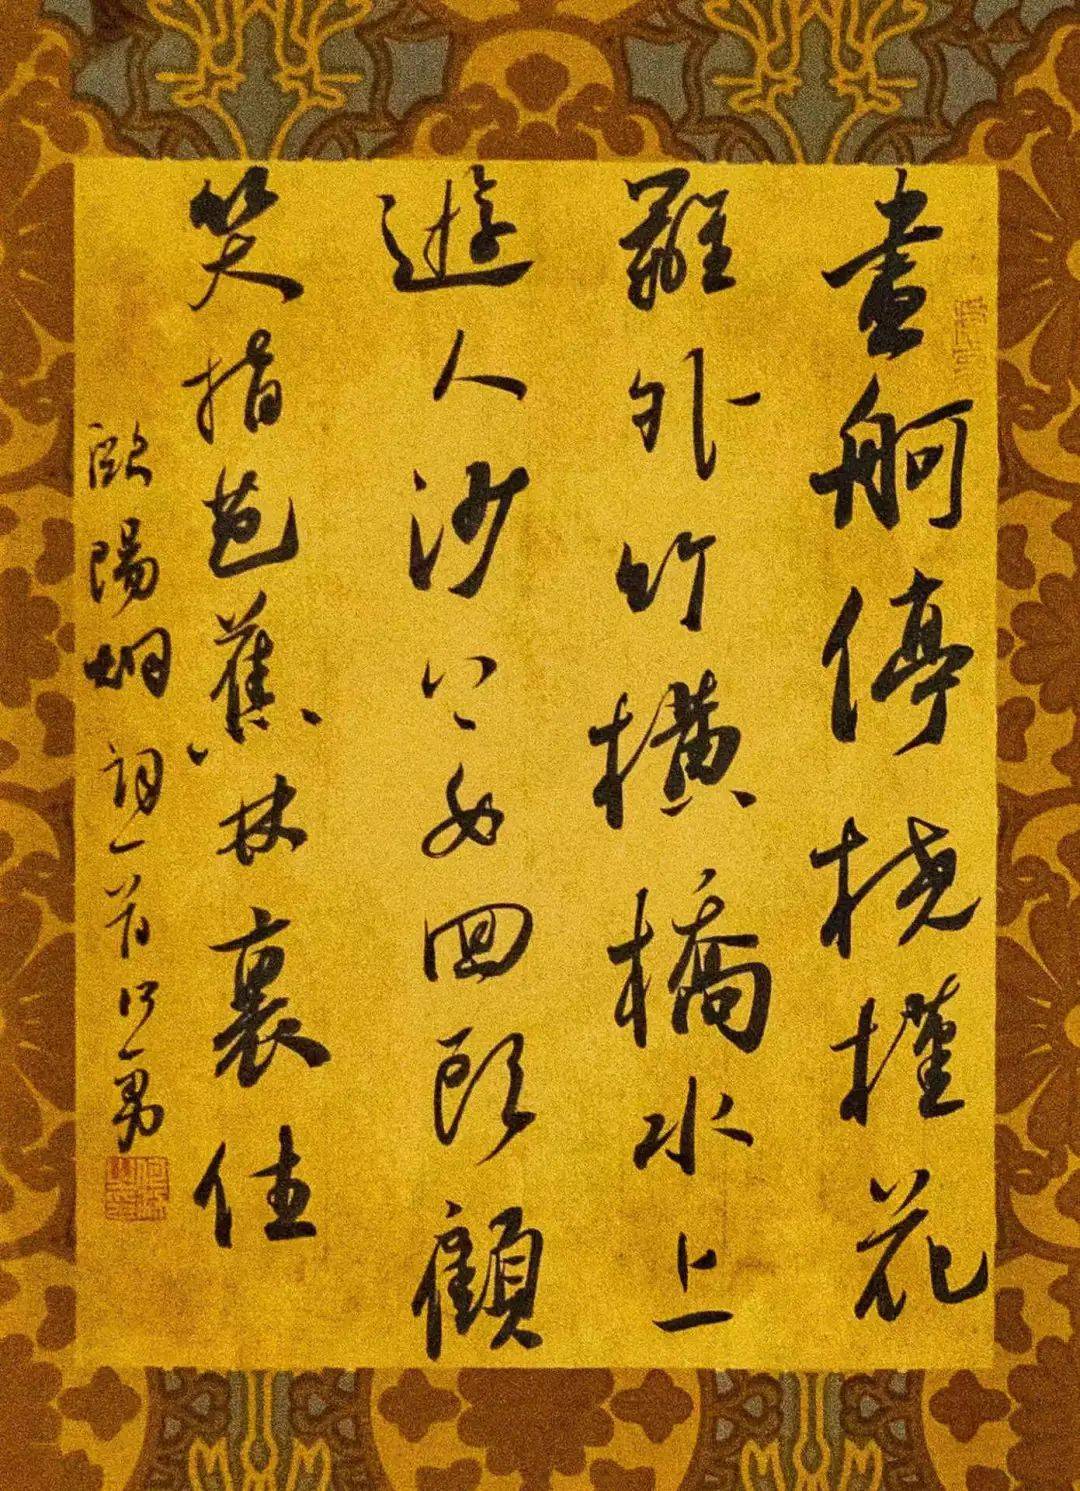 畫舸停桡槿花
籬外竹橫橋水上
遊人沙上女回頭顧
笑指芭蕉林裏住
歐陽炯詞一首